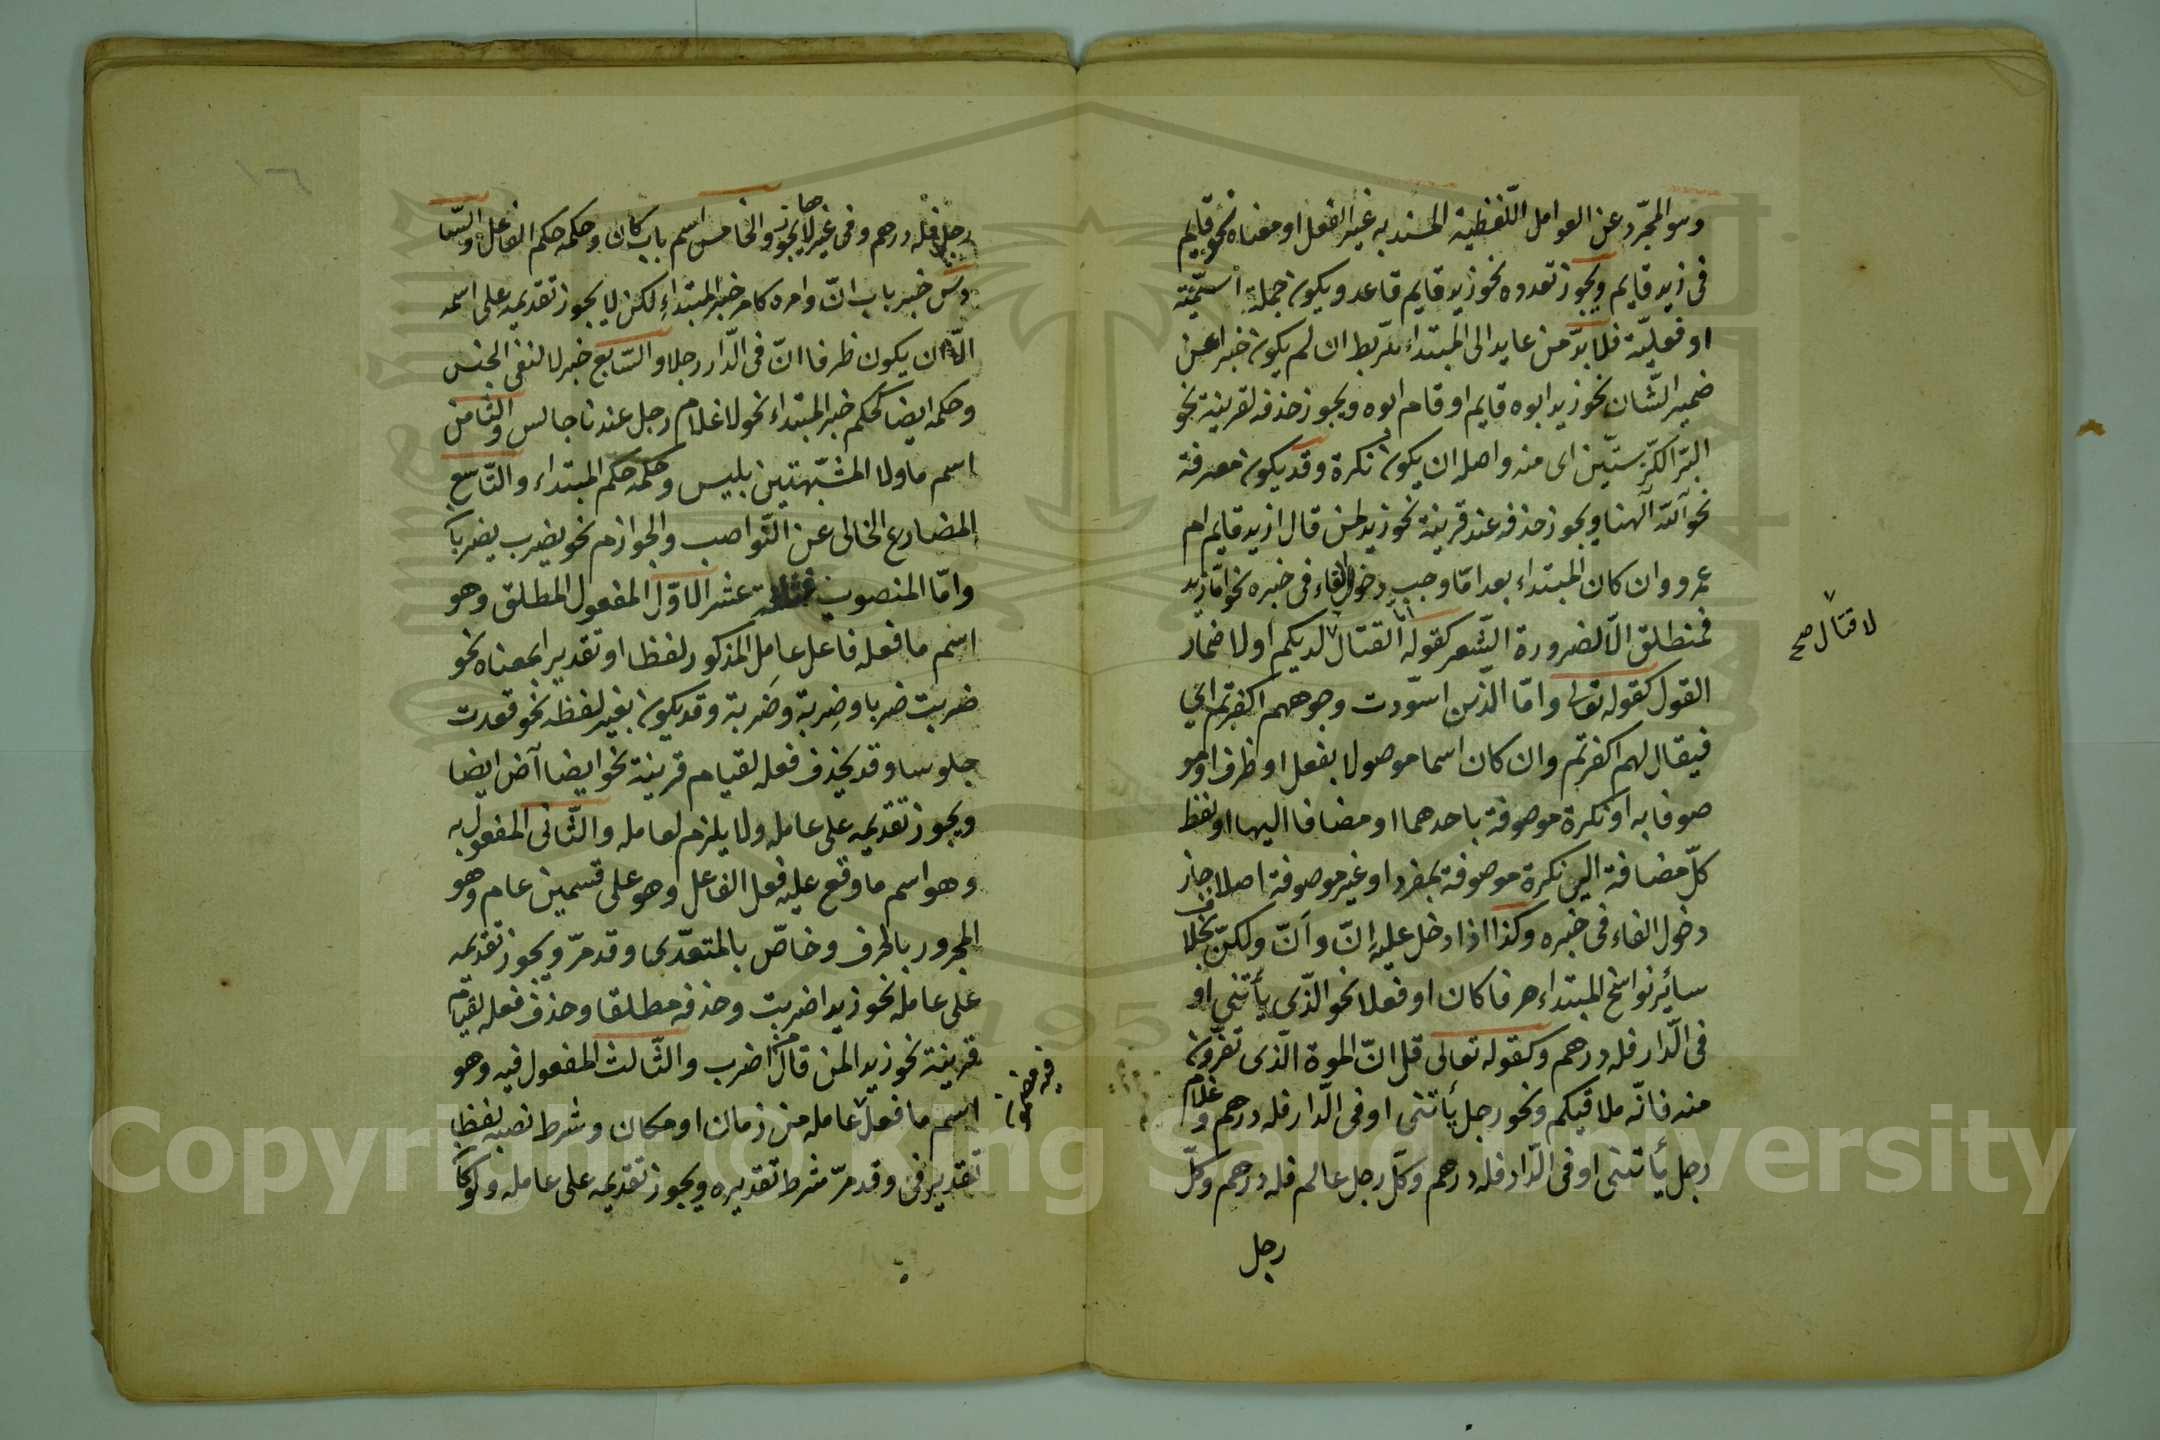 وهو المجرّد عن العوامل اللّفظية المسند به غير الفعل او معناه نحو قايم
فى زيد قايم ويجوز تعدده نحو زيد قايم قاعد ويكون جملة اسميّة
او فعليّة فلا بدّ من عايد الى المبتداء ان لم يكون خبرا عن
ضمير الشّان نحو زيد ابوه قايم او قام ابوه ويجوز حذفه لقرينة نحو
البرّ الكرّ بستّين اى منه واصله ان يكون نكرة وقد يكون معرفة
نحو اللّه آلهنا ويجوز حذفه عند قرينة نحو زيد لمن قال ازيد قايم ام
عمرو وان كان المبتداء بعد امّا وجب دخول الفاء فى خبره نحو امّا زيد
فمنطلق الّا لضرورة الشّعر كقوله امّا القتال لديكم او لاضمار
القول كقوله تعالى وامّا الّذين اسوّدت وجوههم اكفرتم اى
فيقال لهم اكفرتم وان كان اسما موصولا بفعل او ظرف او مو
صوفا به او نكرة موصوفة باحدهما او مضافا اليها او لفظ
كلّ مضافة الى نكرة موصوفة بمفرد او غير موصوفة اصلا جاز
دخول الفاء فى خبره وكذا اذا دخل عليه انّ وأنّ ولكنّ بخلاف
سائر نواسخ المبتداء حرفا كان او فعلا نحو الّذى يأتنى او
فى الّدار فله درهم وكقوله تعالى قل انّ الموة الّذى تفرّون
منه فانّه ملاقيكم ونحو رجل يأتنى او فى الّدار فله درهم وغلام
رجل يأتنى او فى الّدار فله درهم وكلّ رجل عالم فله درهم وكلّ
رجل
لا قتال صح
رجل فله درهم وفى غيرها لا يجوز والخامس اسم باب كان وحكمه حكم الفاعل والسّا
دس خبر باب انّ وامره كامر خبر المبتداء لكن لا يجوز تقديمه على اسمه
الّا ان يكون ظرفا انّ فى الّدار رجلا والسّابع خبر لا لنفى الجنس
وحكمه ايضا كحكم خبر المبتداء نحو لا غلام رجل عندنا جالس والثّامن
اسم ما ولا المشبّهتين بليس وحكمه حكم المبتداء والتّاسع
المضارع الخالى عن النّواصب والجوازم نحو يضرب يضربا
وامّا المنصوب فثلثة عشر الاوّل المفعول المطلق وهو
اسم ما فعله فاعل عامل المذكور لفظا او تقديرا بمعناه نحو
ضربت ضربا وضِربة وضَربة وقد يكون بغير لفظه نحو قعدت
جلوسا وقد يحذف فعله لقيام قرينة نحو ايضا آض ايضا
ويجوز تقديمه على عامله ولا يلزم لعامله والثّانى المفعول به
وهو اسم ما وقع عليه فعل الفاعل وهو على قسمين عام وهو
المجرور بالحرف وخاصّ بالمتعدّى وقد مرّ ويجوز تقديمه
على عامله نحو زيدا ضربت وحذفه مطلقا وحذف فعله لقيام
قرينة نحو زيدا لمن قال من اضرب والثّالث المفعول فيه وهو
اسم ما فعل عامله من زمان او مكان وشرط نصبه لفظا
تقدير فى وقد مرّ شرط تقديره ويجوز تقديمه على عامله ولو كا
Copyright © King Saud University
195